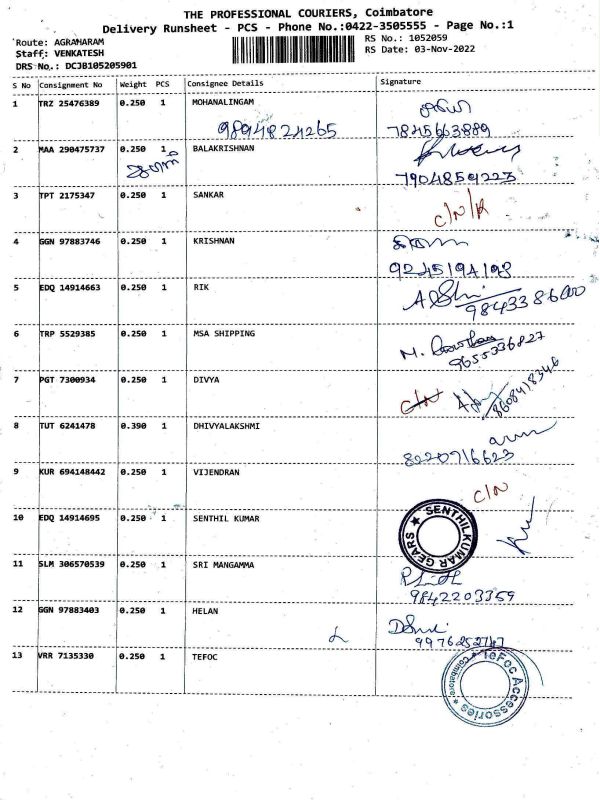 THE PROFESSIONAL COURIERS, Coimbatore
Delivery Runsheet - PCS - Phone No.:0422-3505555 - Page No.:1
Route: AGRAHARAM
RS No.: 1052059
Staff: VENKATESH
RS Date: 03-Nov-2022
DRS No.: DCJB105205901
S No Consignment No Weight PCS Consignee Details Signature
1 TRZ 25476389 0.250 1 MOHANALINGAM
9894824265 7845663889
2 MAA 290475737 0.250 1 BALAKRISHNAN
7904859227
3 TPT 2175347 0.250 1 SANKAR
C/N/R
4 GGN 97883746 0.250 1 KRISHNAN
9245194198
5 EDQ 14914663 0.250 1 RIK
9843386600
6 TRP 5529385 0.250 1 MSA SHIPPING
9655336827
7 PGT 7300934 0.250 1 DIVYA
C/N 8608418346
8 TUT 6241478 0.390 1 DHIVYALAKSHMI
8220716623
9 KUR 694148442 0.250 1 VIJENDRAN
C/N
10 EDQ 14914695 0.250 1 SENTHIL KUMAR
SENTHILKUMAR GEARS
11 SLM 306570539 0.250 1 SRI MANGAMMA
9842203359
12 GGN 97883403 0.250 1 HELAN
9976252747
13 VRR 7135330 0.250 1 TEFOC
TeFoc Accessories
Coimbatore